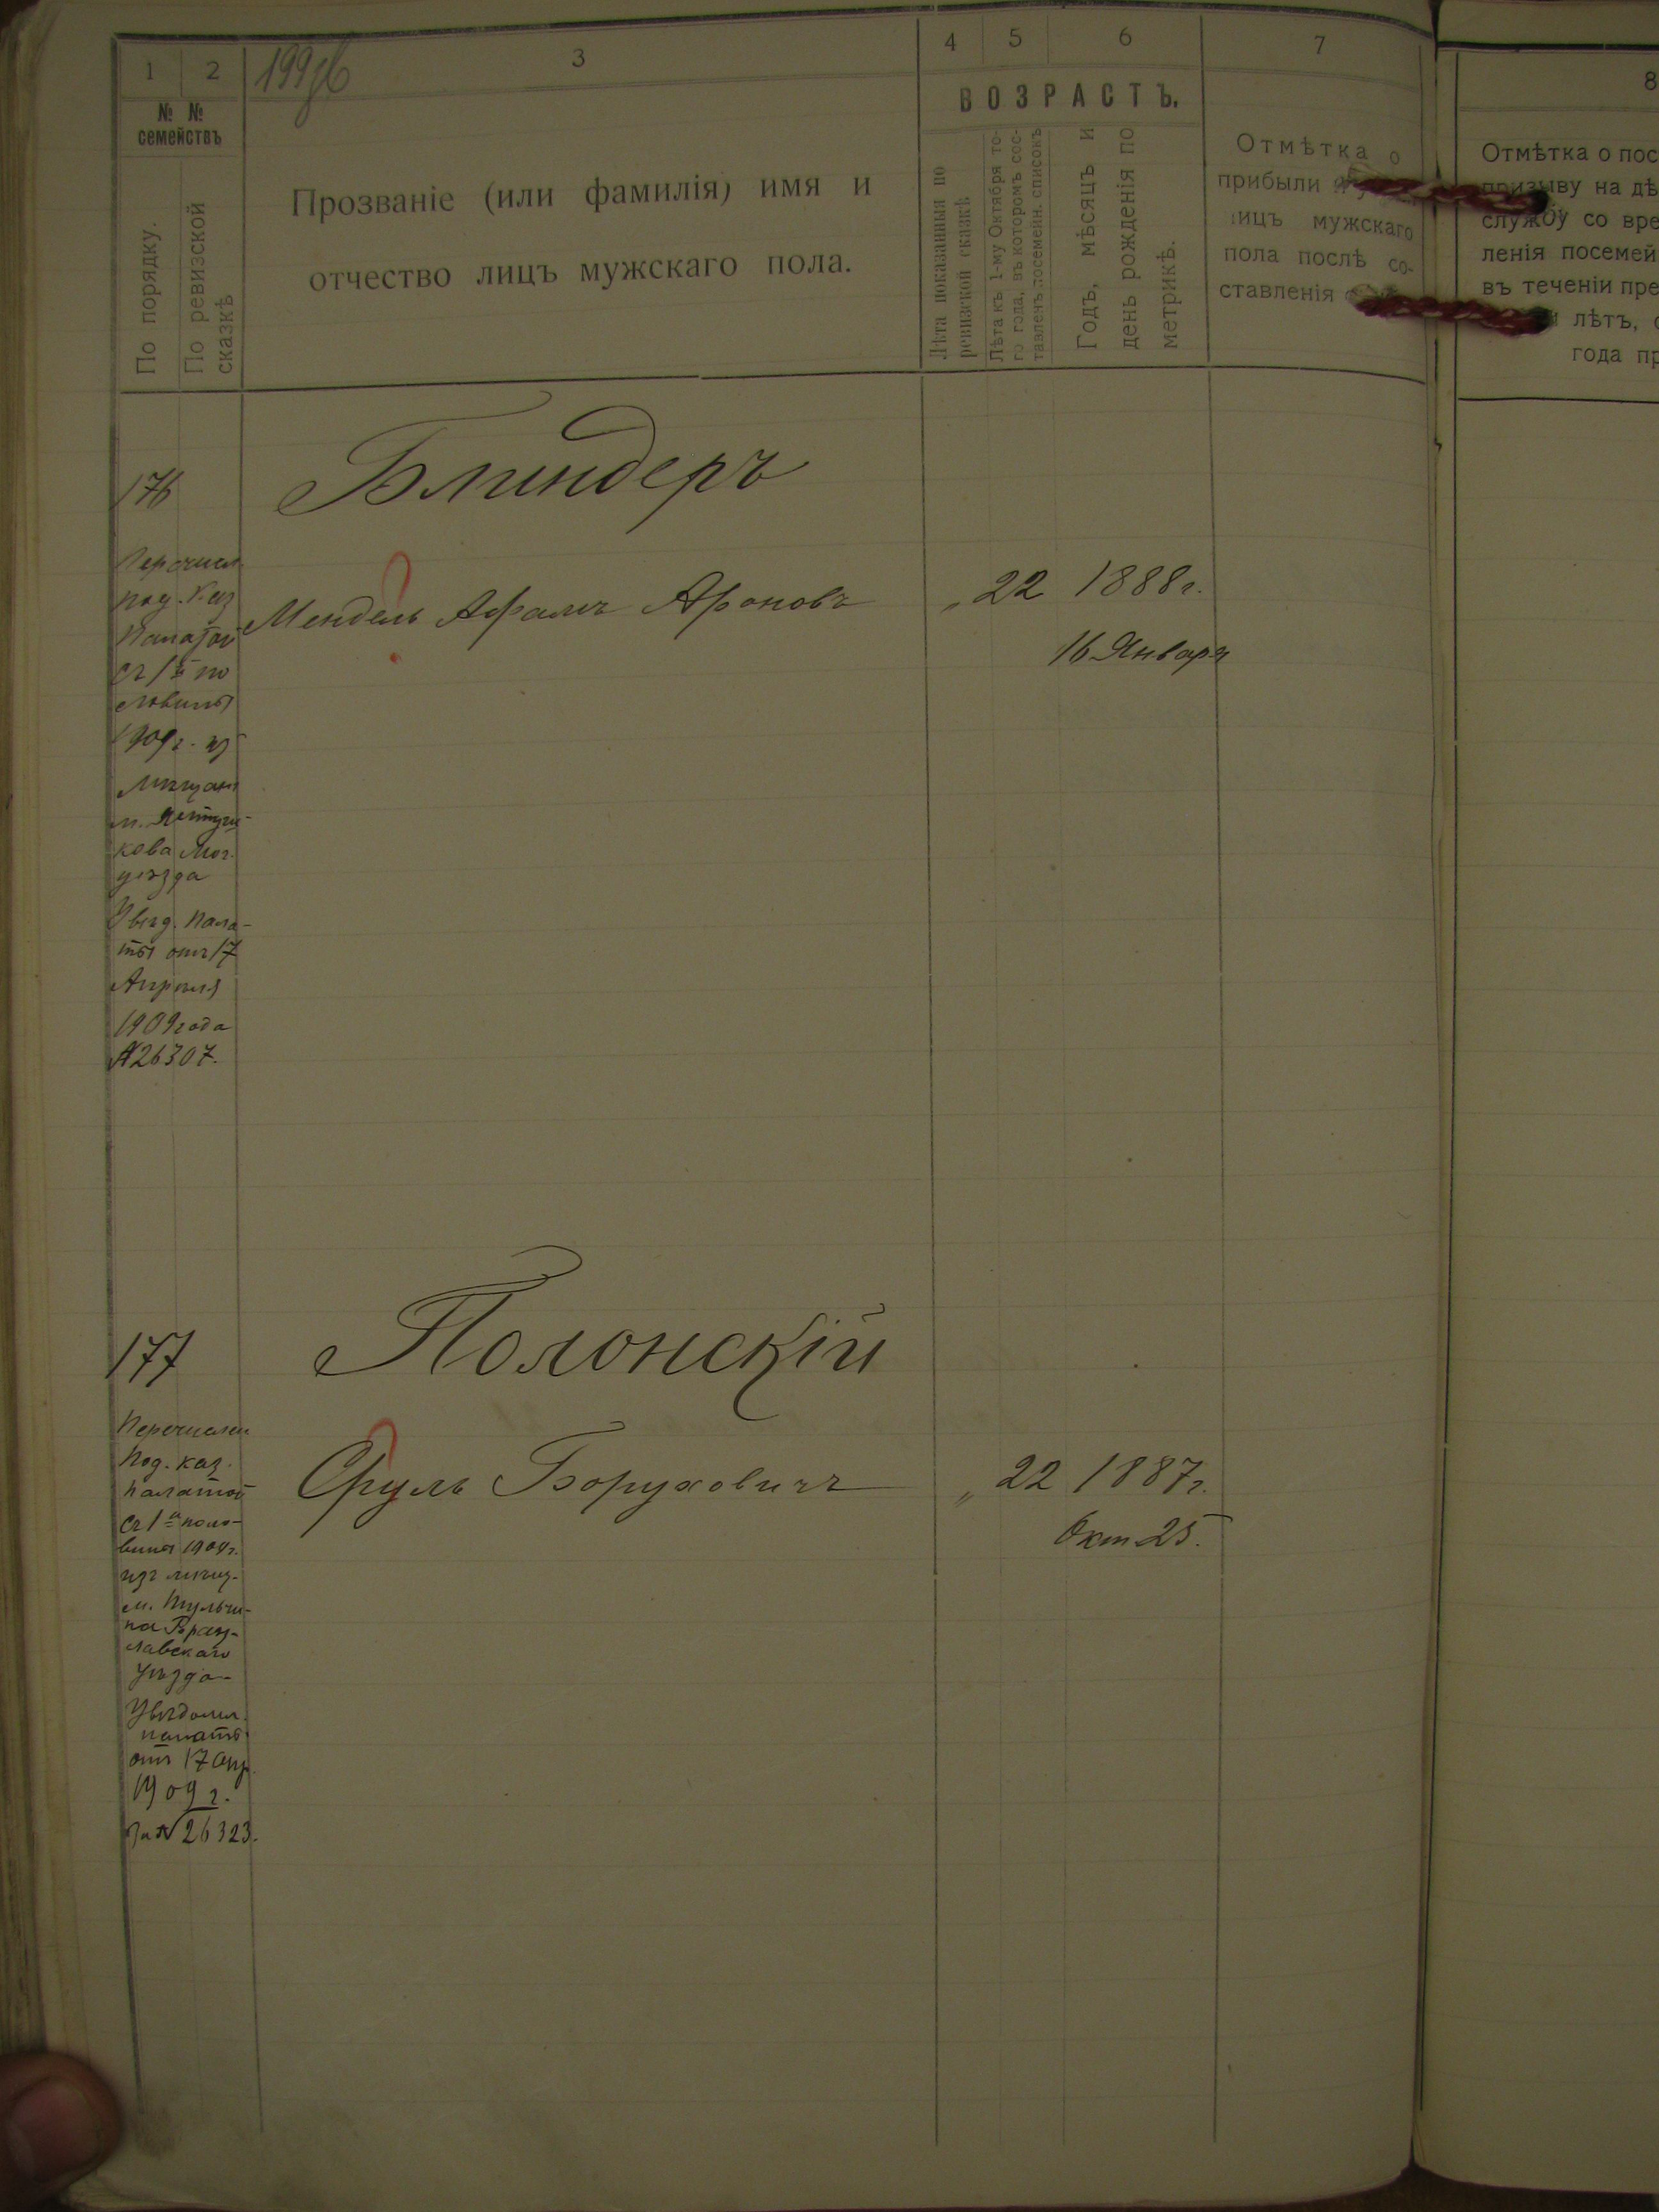 1
2
3
4
5
6
7
8
№ №
семействъ
По порядку.
По ревизской
сказкѣ
Прозваніе (или фамилія) имя и
отчество лицъ мужскаго пола.
ВОЗРАСТЪ.
Лѣта показанныя по
ревизской сказкѣ
Лѣта къ 1-му Октября то-
го года, въ которомъ сос-
тавленъ посемейн. списокъ
Годъ, мѣсяцъ и
день рожденія по
метрикѣ.
Отмѣтка о
прибыли
лицъ мужскаго
пола послѣ со-
ставленія
Отмѣтка о пос
призыву на дѣ
службу со вре
ленія посемей
въ теченіи пре
лѣтъ,
года пр
176
Блиндеръ
Перечисл.
под. Каз
Палатой
съ 1й по
ловины
1909г. из
мѣщанъ
м.
кова Мог.
уѣзда
Увѣд. Пала-
ты отъ 17
Апрѣля
1909 года
№26307.
Мендель Ароновъ
" 22 1888г.
16 Января
177
Полонскій
Перечислен
Под. каз.
палатой
съ 1й поло-
вины 1909г.
изъ мѣщ.
м. Тульчи-
на Брац-
лавскаго
уѣзда
Увѣдомл.
палаты
отъ 17 Апр.
1909 г.
За № 26323.
Сруль Боруховичъ
" 22 1887г.
Окт 25.